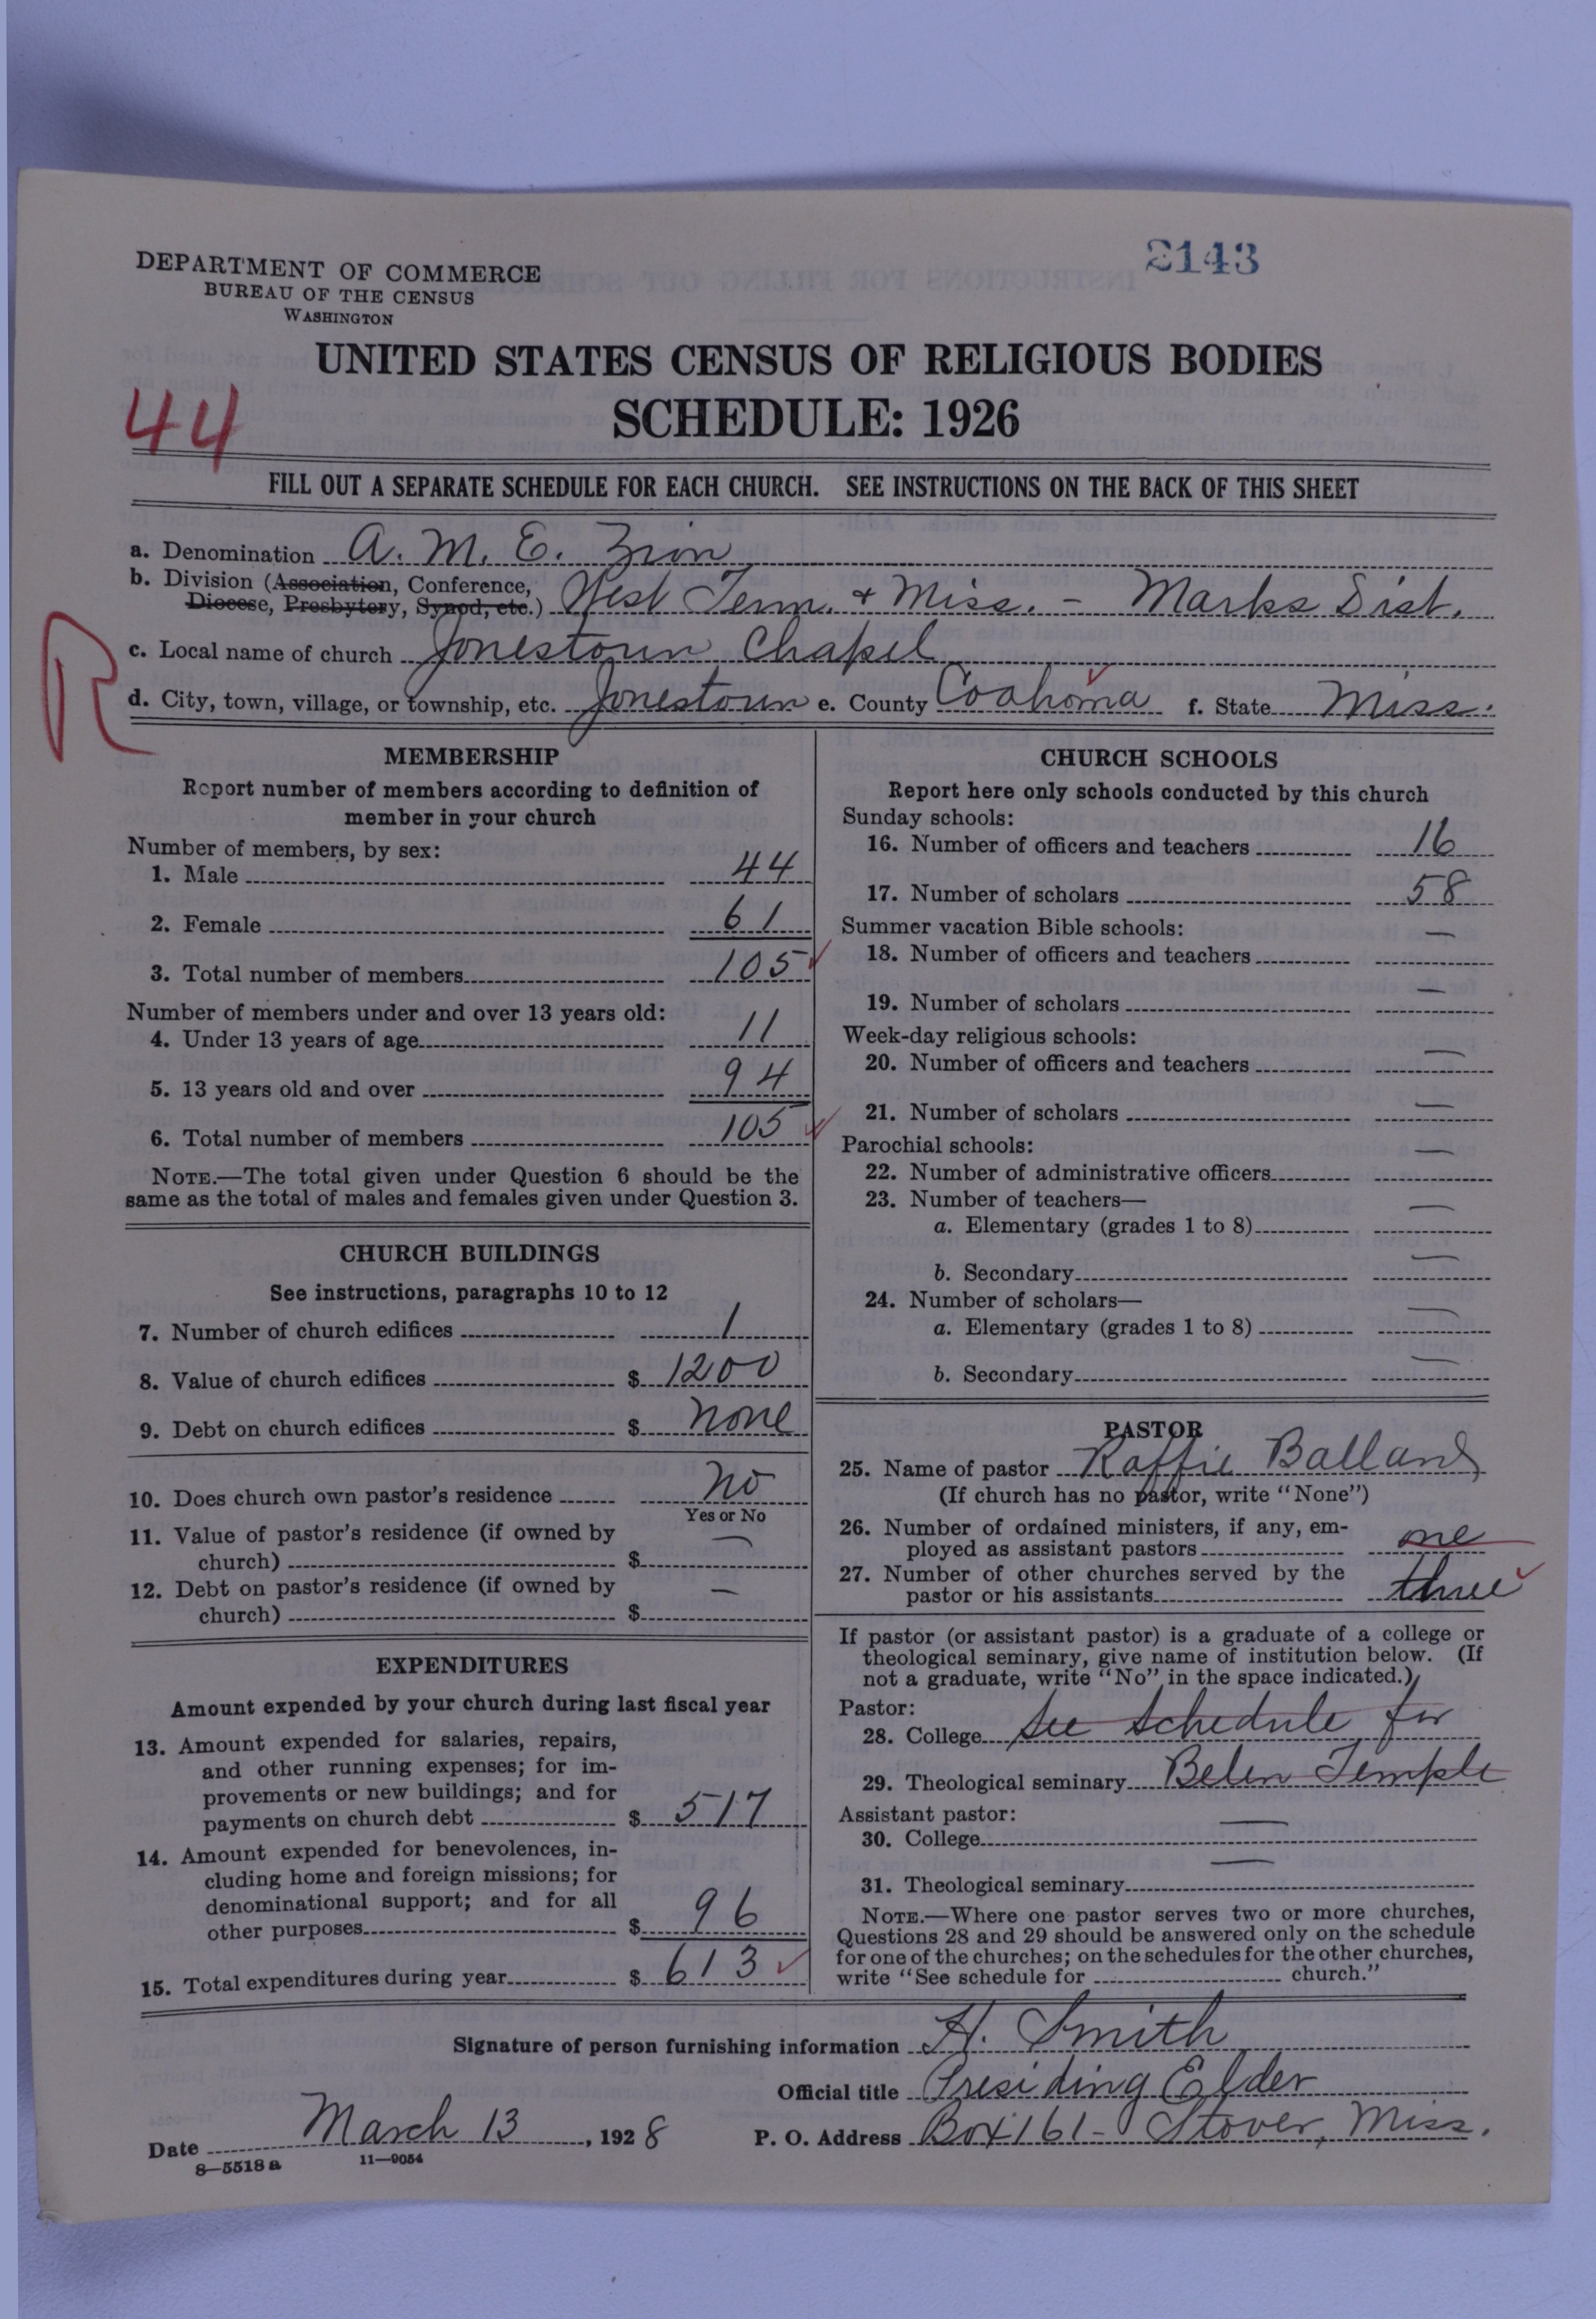 2143
DEPARTMENT OF COMMERCE
BUREAU OF THE CENSUS
WASHINGTON
UNITED STATES CENSUS OF RELIGIOUS BODIES
SCHEDULE: 1926
44
FILL OUT A SEPARATE SCHEDULE FOR EACH CHURCH. SEE INSTRUCTIONS ON THE BACK OF THIS SHEET
a. Denomination A. M. E. Zion
b. Division (Association, Conference,
Diocese, Presbytery, Synod, etc.) West Tenn. + Miss. - Marks Dist.
R
c. Local name of church Jonestown Chapel
d. City, town, village, or township, etc. Jonestown e. County Coahoma f. State Miss.
MEMBERSHIP
Report number of members according to definition of
member in your church
Number of members, by sex:
1. Male 44
2. Female 61
3. Total number of members 105
Number of members under and over 13 years old:
4. Under 13 years of age 11
5. 13 years old and over 94
6. Total number of members 105
NOTE.—The total given under Question 6 should be the
same as the total of males and females given under Question 3.
CHURCH BUILDINGS
See instructions, paragraphs 10 to 12
7. Number of church edifices 1
8. Value of church edifices $ 1200
9. Debt on church edifices $ none
10. Does church own pastor's residence no
Yes or No
11. Value of pastor's residence (if owned by
church) $ —
12. Debt on pastor's residence (if owned by
church) $ —
EXPENDITURES
Amount expended by your church during last fiscal year
13. Amount expended for salaries, repairs,
and other running expenses; for im-
provements or new buildings; and for
payments on church debt $ 517
14. Amount expended for benevolences, in-
cluding home and foreign missions; for
denominational support; and for all
other purposes $ 96
15. Total expenditures during year $ 613
CHURCH SCHOOLS
Report here only schools conducted by this church
Sunday schools:
16. Number of officers and teachers 16
17. Number of scholars 58
Summer vacation Bible schools:
18. Number of officers and teachers —
19. Number of scholars —
Week-day religious schools:
20. Number of officers and teachers —
21. Number of scholars —
Parochial schools:
22. Number of administrative officers —
23. Number of teachers—
a. Elementary (grades 1 to 8) —
b. Secondary —
24. Number of scholars—
a. Elementary (grades 1 to 8) —
b. Secondary —
PASTOR
25. Name of pastor Raffie Ballard
(If church has no pastor, write "None")
26. Number of ordained ministers, if any, em-
ployed as assistant pastors one
27. Number of other churches served by the
pastor or his assistants three
If pastor (or assistant pastor) is a graduate of a college or
theological seminary, give name of institution below. (If
not a graduate, write "No" in the space indicated.)
Pastor:
28. College See Schedule for
29. Theological seminary Belen Temple
Assistant pastor:
30. College —
31. Theological seminary —
NOTE.—Where one pastor serves two or more churches,
Questions 28 and 29 should be answered only on the schedule
for one of the churches; on the schedules for the other churches,
write "See schedule for church."
Signature of person furnishing information H. Smith
Official title Presiding Elder
Date March 13, 1928 P. O. Address Box 161 - Stover, Miss.
8—5518a 11—9054